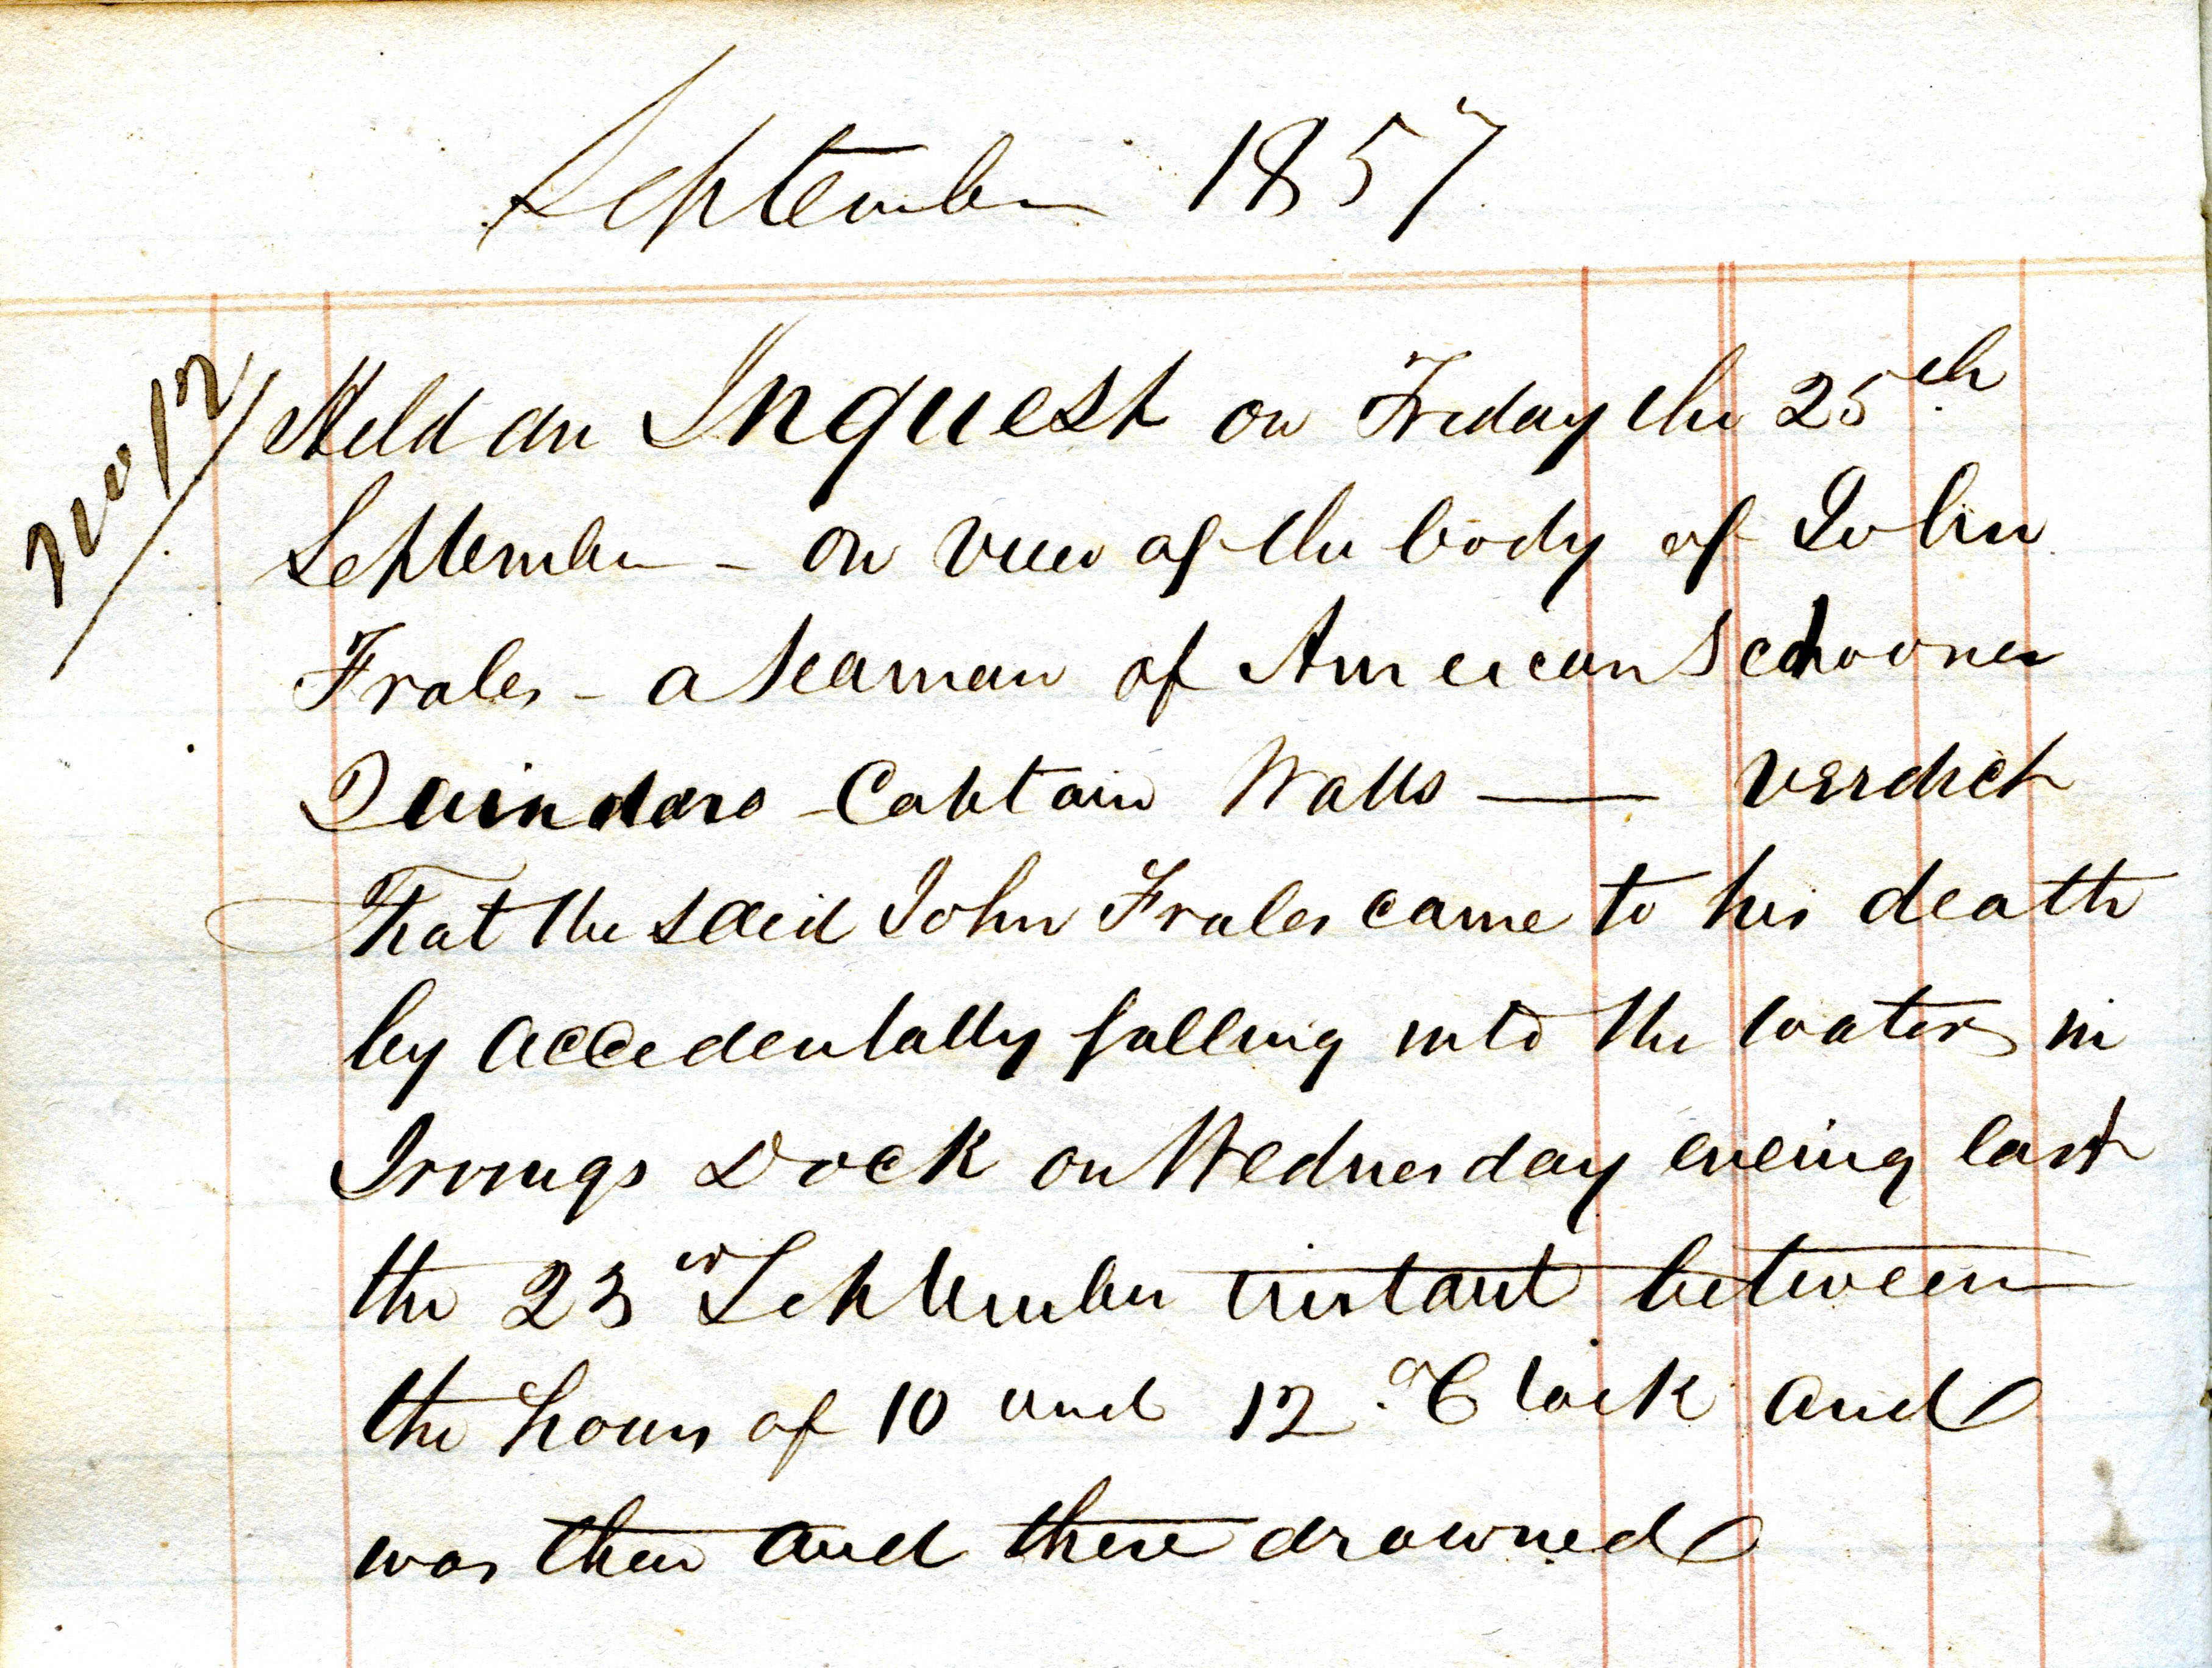 September 1857
No 12
Held an Inquest on Friday the 25th
September - on view of the body of John
Frales - a Seaman of American Schooner
Quindaro - Captain Walls — Verdict
That the said John Frales came to his death
by accidentally falling into the water in
Irvings Dock on Wednesday evening last
the 23rd September instant between
the hours of 10 and 12 O'Clock and
was then and there drowned